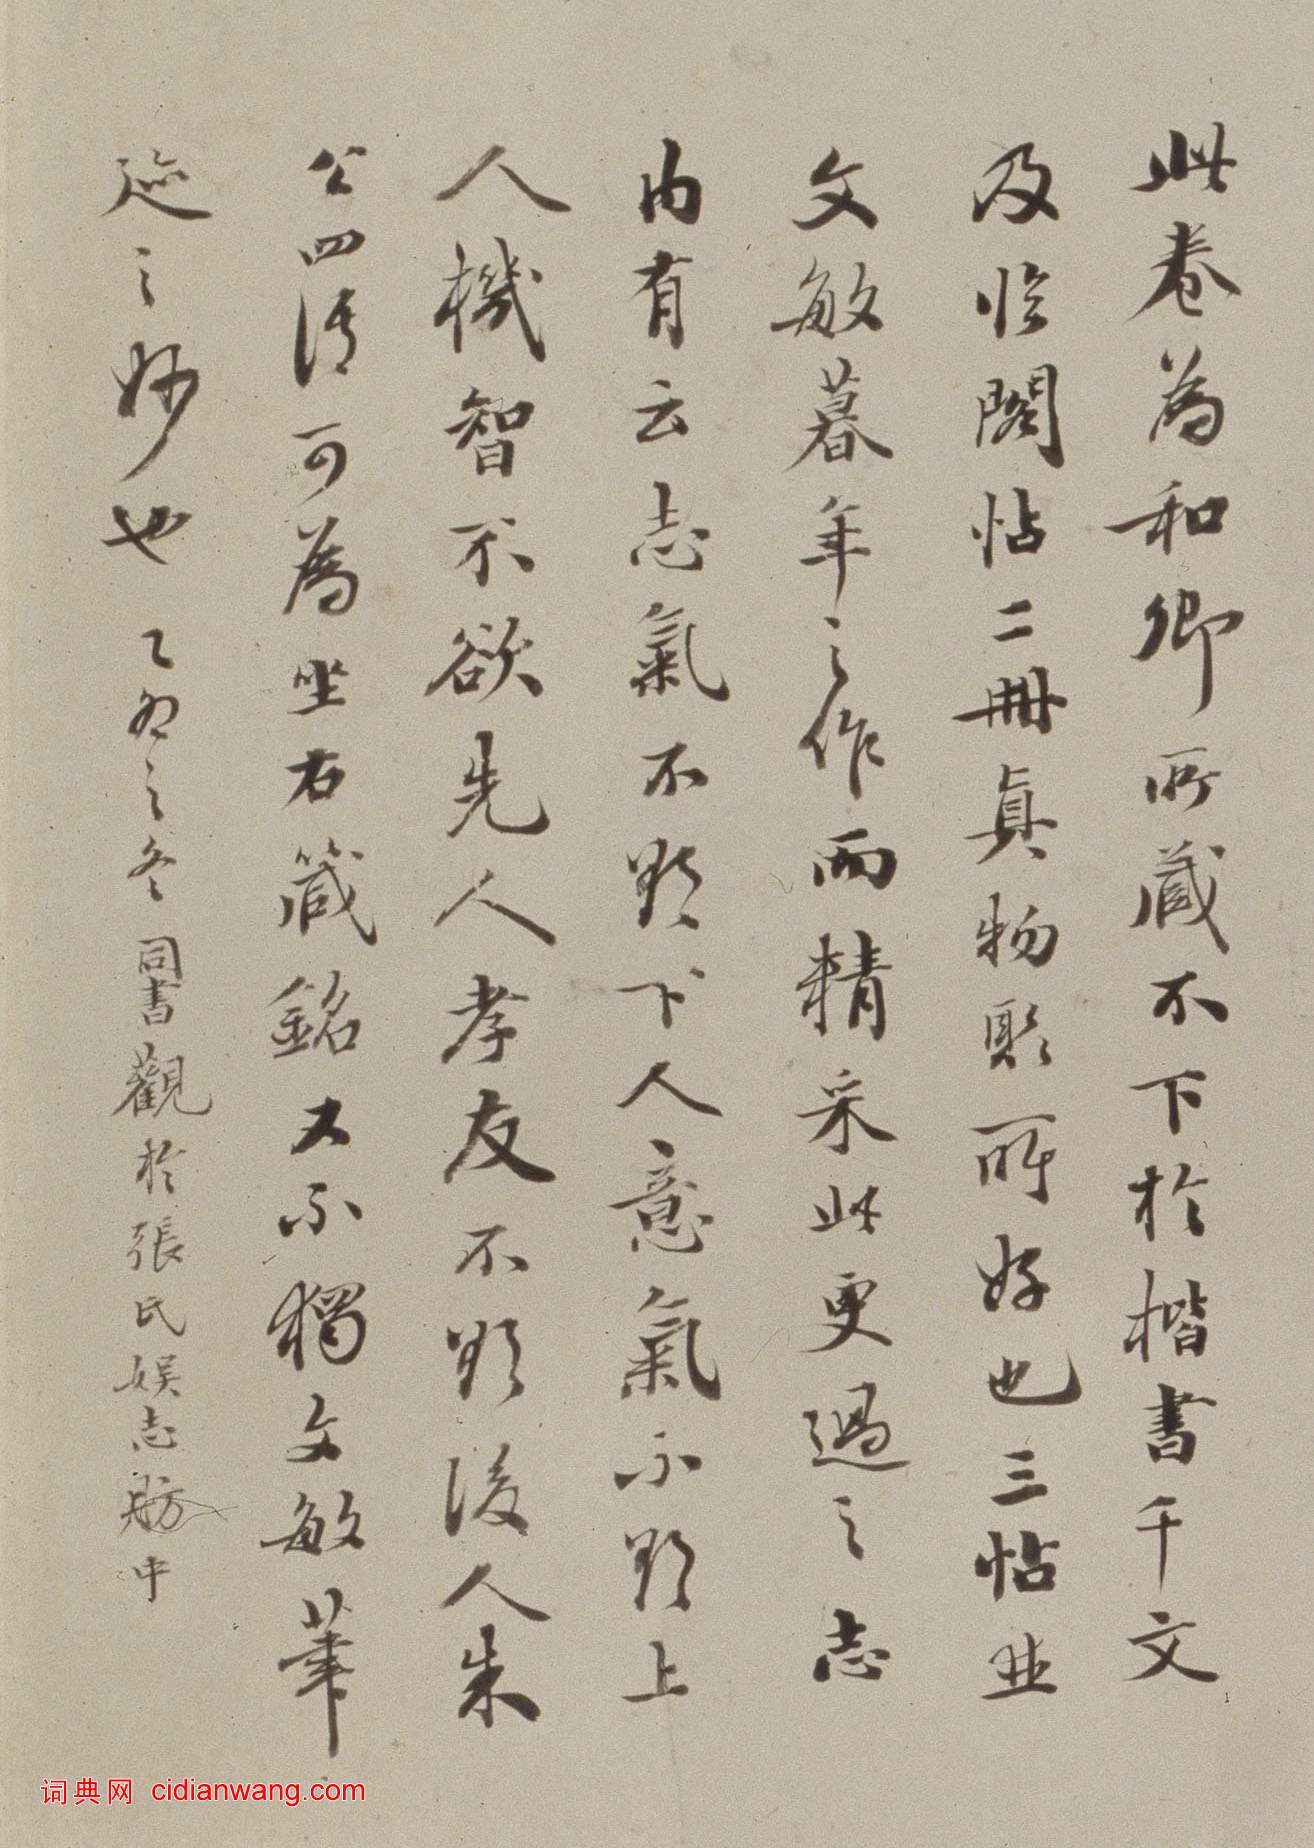 此卷為和卿所藏不下於楷書千文
及臨閣帖二冊真物聚所好也三帖並
文敏暮年之作而精采此更過之志
內有云志氣不欺下人意氣不欺上
人機智不欲先人孝友不欺後人朱
公四語可為坐右箴銘又不獨文敏筆
迹之妙也 乙卯之冬 同書觀於張氏娛志舫中
词典网 cidianwang.com